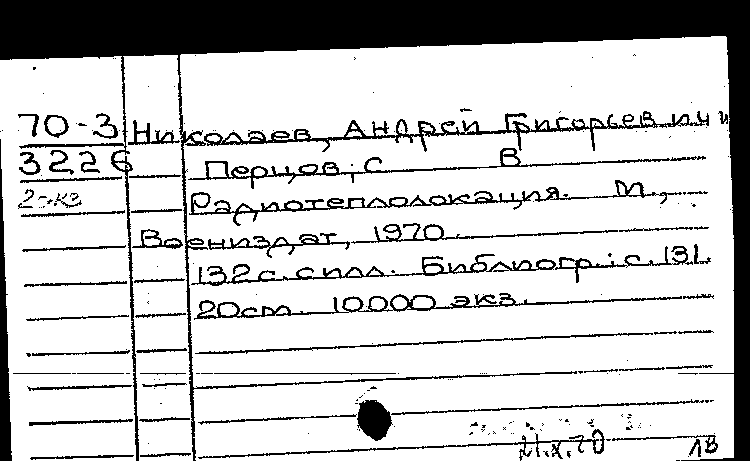 70-3 Николаев, Андрей Григорьевич и
3226 Перцов, С В
2 экз Радиотеплолокация. М.,
Воениздат, 1970.
132 с. с илл. Библиогр.: с. 131.
20 см. 10000 экз.
21.X.70 ЛВ